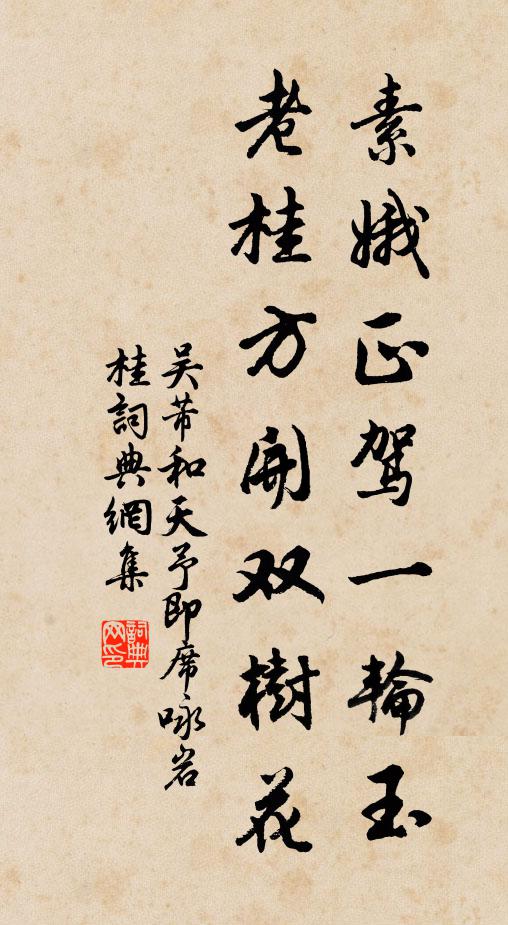 素娥正驾一輪玉
老桂方開双樹花
吴芾和天予即席咏岩
桂詞典網集
詞典
网印